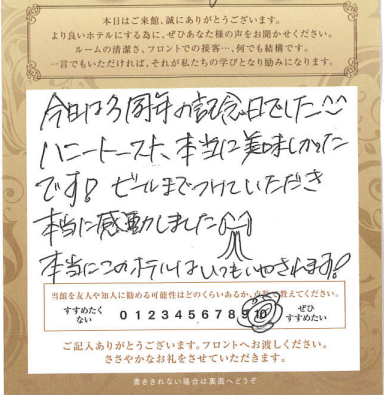 本日はご来館、誠にありがとうございます。
より良いホテルにする為に、ぜひあなた様の声をお聞かせください。
ルームの清潔さ、フロントでの接客…、何でも結構です。
一言でもいただければ、それが私たちの学びとなり励みになります。
今日は3周年の記念日でした
ハニートースト、本当に美味しかった
です! ビールまでつけていただき
本当に感動しました
本当にこのホテルはいつもいやされます!
当館を友人や知人に勧める可能性はどのくらいあるか、点数で教えてください。
すすめたくない 0 1 2 3 4 5 6 7 8 9 10 ぜひすすめたい
ご記入ありがとうございます。フロントへお渡しください。
ささやかなお礼をさせていただきます。
書ききれない場合は裏面へどうぞ